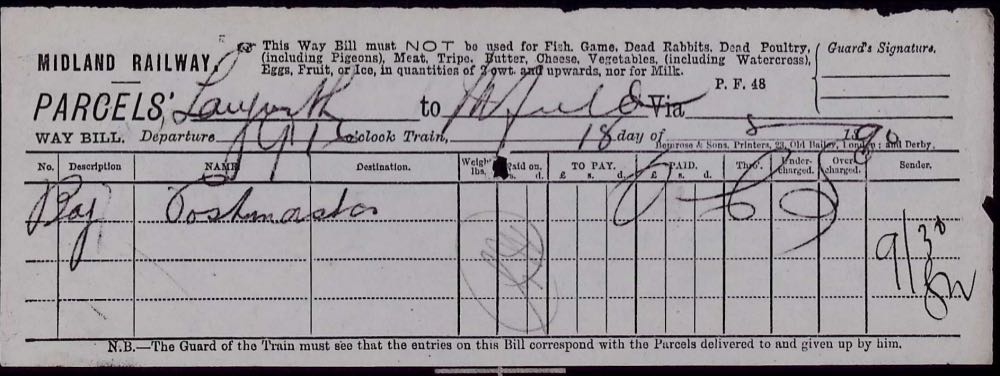 This Way Bill must NOT be used for Fish, Game, Dead Rabbits, Dead Poultry,
(including Pigeons), Meat, Tripe, Butter, Cheese, Vegetables, (including Watercress),
Eggs, Fruit, or Ice, in quantities of 2 cwt. and upwards, nor for Milk.
Guard's Signature.
MIDLAND RAILWAY.
P. F. 48
PARCELS' to Via
WAY BILL. Departure o'clock Train, 18 day of 8 1890
Bemrose & Sons, Printers, 23, Old Bailey, London; and Derby.
No. Description NAME Destination. Weight lbs. Paid on. s. d. TO PAY. £ s. d. PAID. £ s. d. Thro'. Under-charged. Over-charged. Sender.
Bag Postmaster
9/30
N.B.—The Guard of the Train must see that the entries on this Bill correspond with the Parcels delivered to and given up by him.